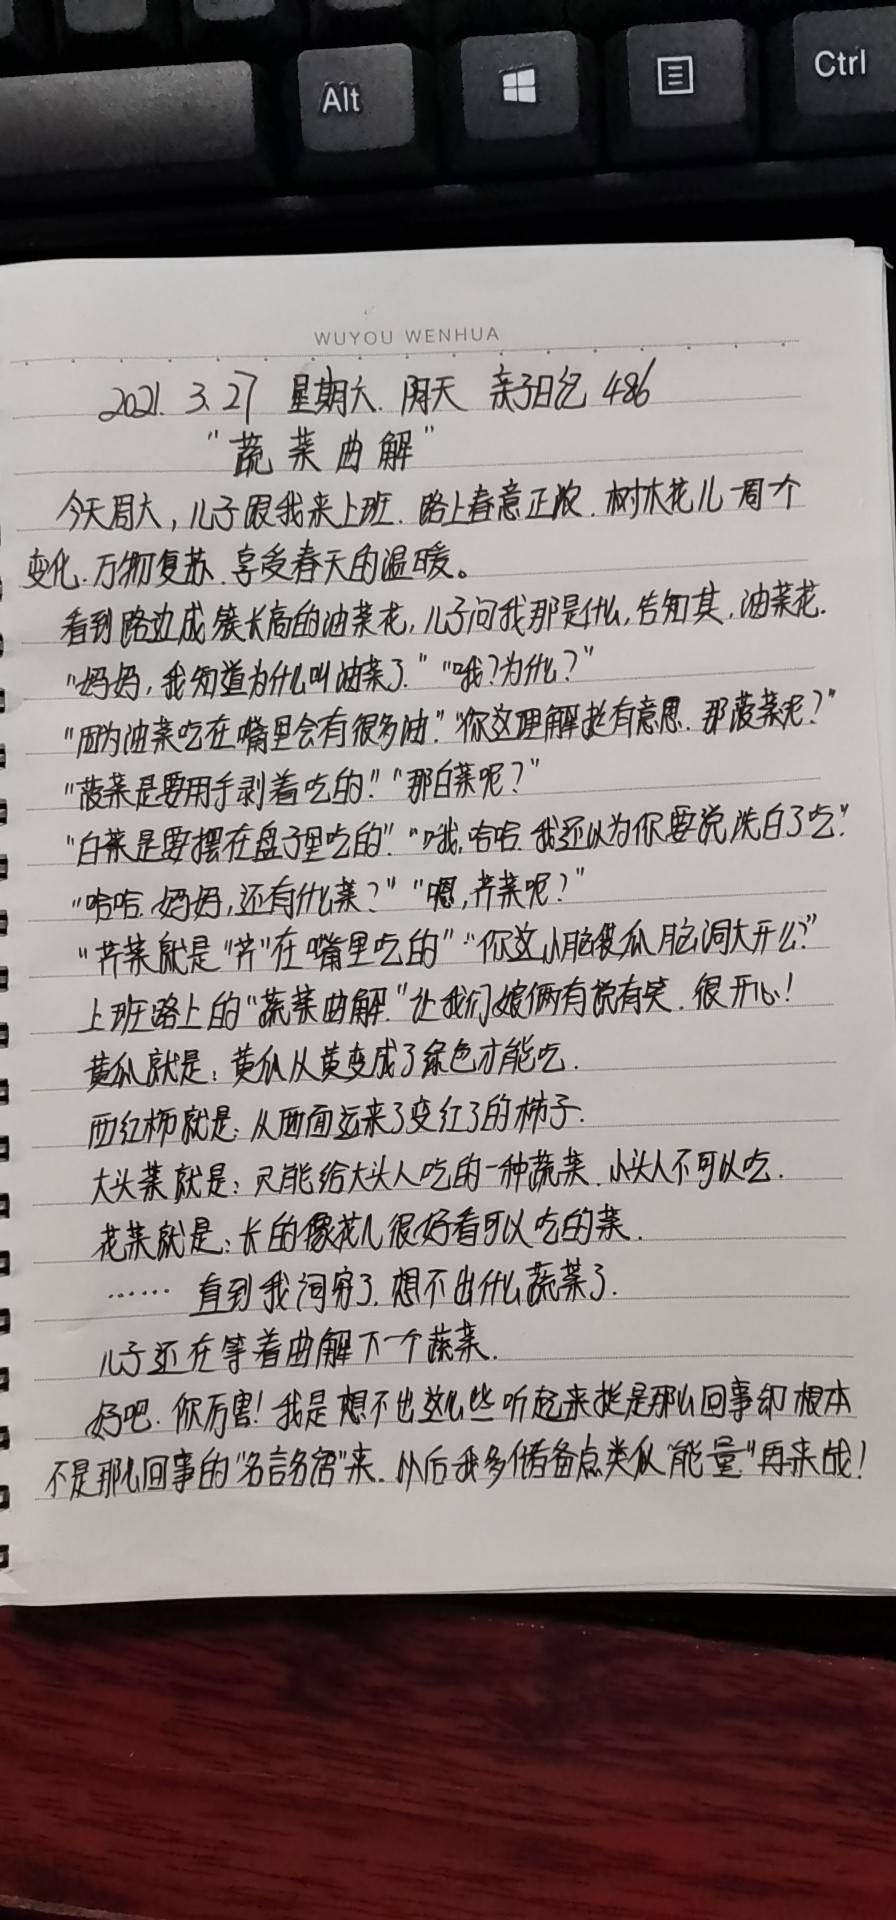 Alt
Ctrl
WUYOU WENHUA
2021. 3.27 星期六. 阴天 亲子日记 486
“蔬菜曲解”
今天周六，儿子跟我来上班. 路上春意正浓. 树木花儿一周一个
变化. 万物复苏. 享受春天的温暖。
看到路边成簇长高的油菜花, 儿子问我那是什么, 告知其, 油菜花.
“妈妈, 我知道为什么叫油菜了.” “哦？为什么？”
“因为油菜吃在嘴里会有很多油.” “你这理解挺有意思. 那菠菜呢？”
“菠菜是要用手剥着吃的.” “那白菜呢？”
“白菜是要摆在盘子里吃的”. “哦, 哈哈. 我还以为你要说洗白了吃.”
“哈哈. 妈妈, 还有什么菜？” “嗯, 芹菜呢？”
“芹菜就是“芹”在嘴里吃的” “你这小脑袋瓜脑洞大开么？”
上班路上的“蔬菜曲解.”让我们娘俩有说有笑. 很开心!
黄瓜就是: 黄瓜从黄变成了绿色才能吃.
西红柿就是: 从西面运来了变红了的柿子.
大头菜就是: 只能给大头人吃的一种蔬菜. 小头人不可以吃.
花菜就是: 长的像花儿很好看可以吃的菜.
…… 直到我词穷了. 想不出什么蔬菜了.
儿子还在等着曲解下一个蔬菜.
好吧. 你厉害! 我是想不出这么些听起来挺是那么回事却根本
不是那么回事的“名言名宿”来. 以后我多储备点类似“能量”再来战!